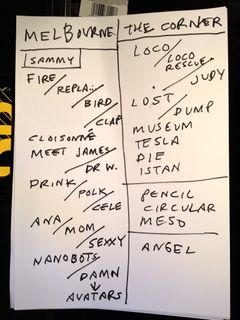 MELBOURNE
SAMMY
FIRE/
REPLA../
BIRD/
CLAP
CLOISONNÉ
MEET JAMES/
DR W.
DRINK/
POLK/
CELE
ANA/
MOM/
SEXXY
NANOBOTS/
DAMN
↓
AVATARS
THE CORNER
LOCO/
LOCO
RESCUE/
JUDY
LOST/
DUMP
MUSEUM
TESLA
DIE
ISTAN
PENCIL
CIRCULAR
MESO
ANGEL